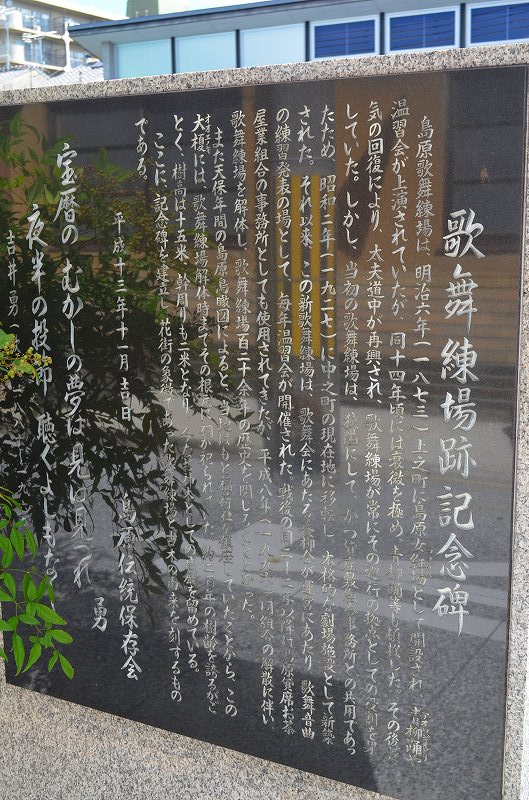 歌舞練場跡記念碑
島原歌舞練場は、明治六年（一八七三）上之町に島原女紅場として開設され、青柳踊や
温習会が上演されていたが、同十四年頃には衰微を極め、青柳踊等も頓挫した。その後、景
気の回復により、太夫道中が再興され、歌舞練場が常にその巡行の拠点としての役割を果
していた。しかし、当初の歌舞練場は、狭隘にして、かつ貸座敷組合事務所との共用であっ
たため、昭和二年（一九二七）に中之町の現在地に移転し、本格的な劇場施設として新築
された。それ以来、この新歌舞練場は、歌舞会にあたる青柳会が運営にあたり、歌舞音曲
の練習発表の場として、毎年温習会が開催された。戦後の同二十二年以降は島原貸席お茶
屋業組合の事務所としても使用されてきたが、平成八年（一九九六）同組合の解散に伴い
歌舞練場を解体し、歌舞練場百二十余年の歴史を閉じることとなった。
また天保年間の島原鳥瞰図によると、
大榎には、歌舞練場解体時までその根元に
とく、樹高は十五米、幹周りも二米となり
である。
ここに、記念碑を建立し、花街の象徴
平成十三年十一月吉日
島原伝統保存会
宝暦の むかしの夢は 見はみつれ
夜半の投節 聴くよしもなし 勇
吉井 勇